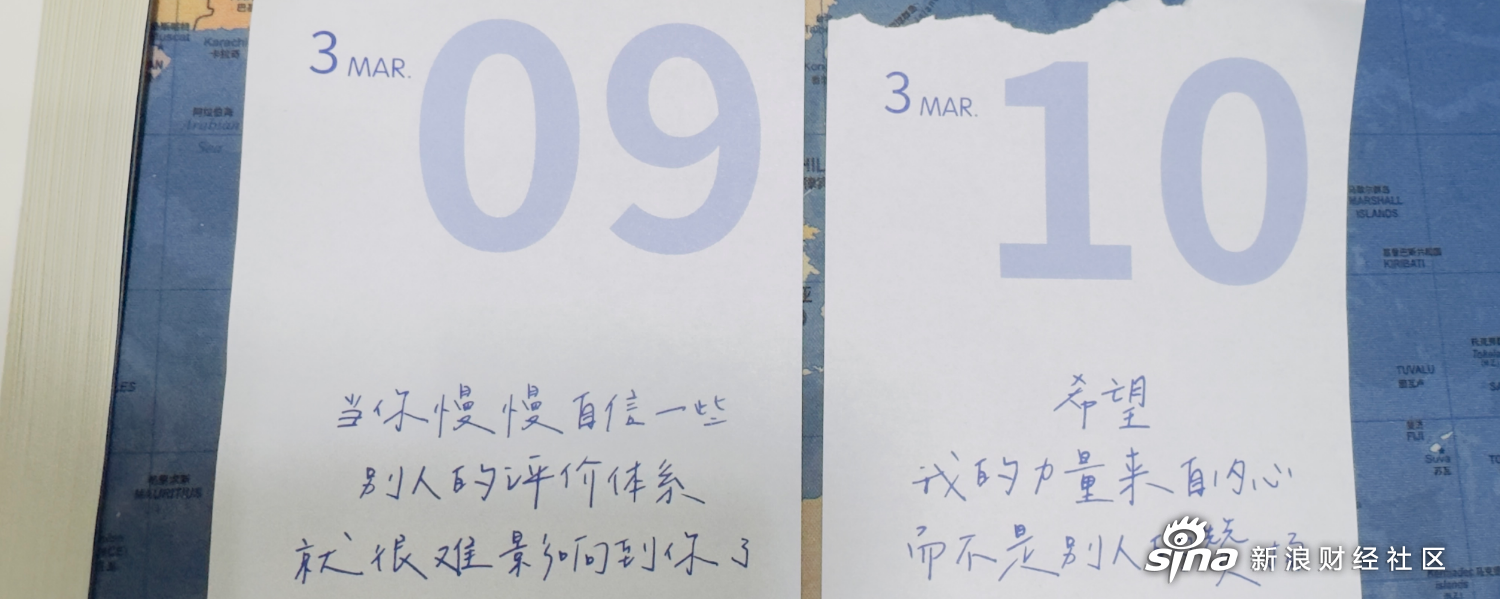 3 MAR.
09
当你慢慢自信一些
别人的评价体系
就很难影响到你了
3 MAR.
10
希望
我的力量来自内心
而不是别人
sina 新浪财经社区
Karachi
卡拉奇
阿拉伯海
Arabian
Sea
MAURITIUS
MARSHALL
ISLANDS
KIRIBATI
TUVALU
图瓦卢
斐济
FIJI
Suva
苏瓦